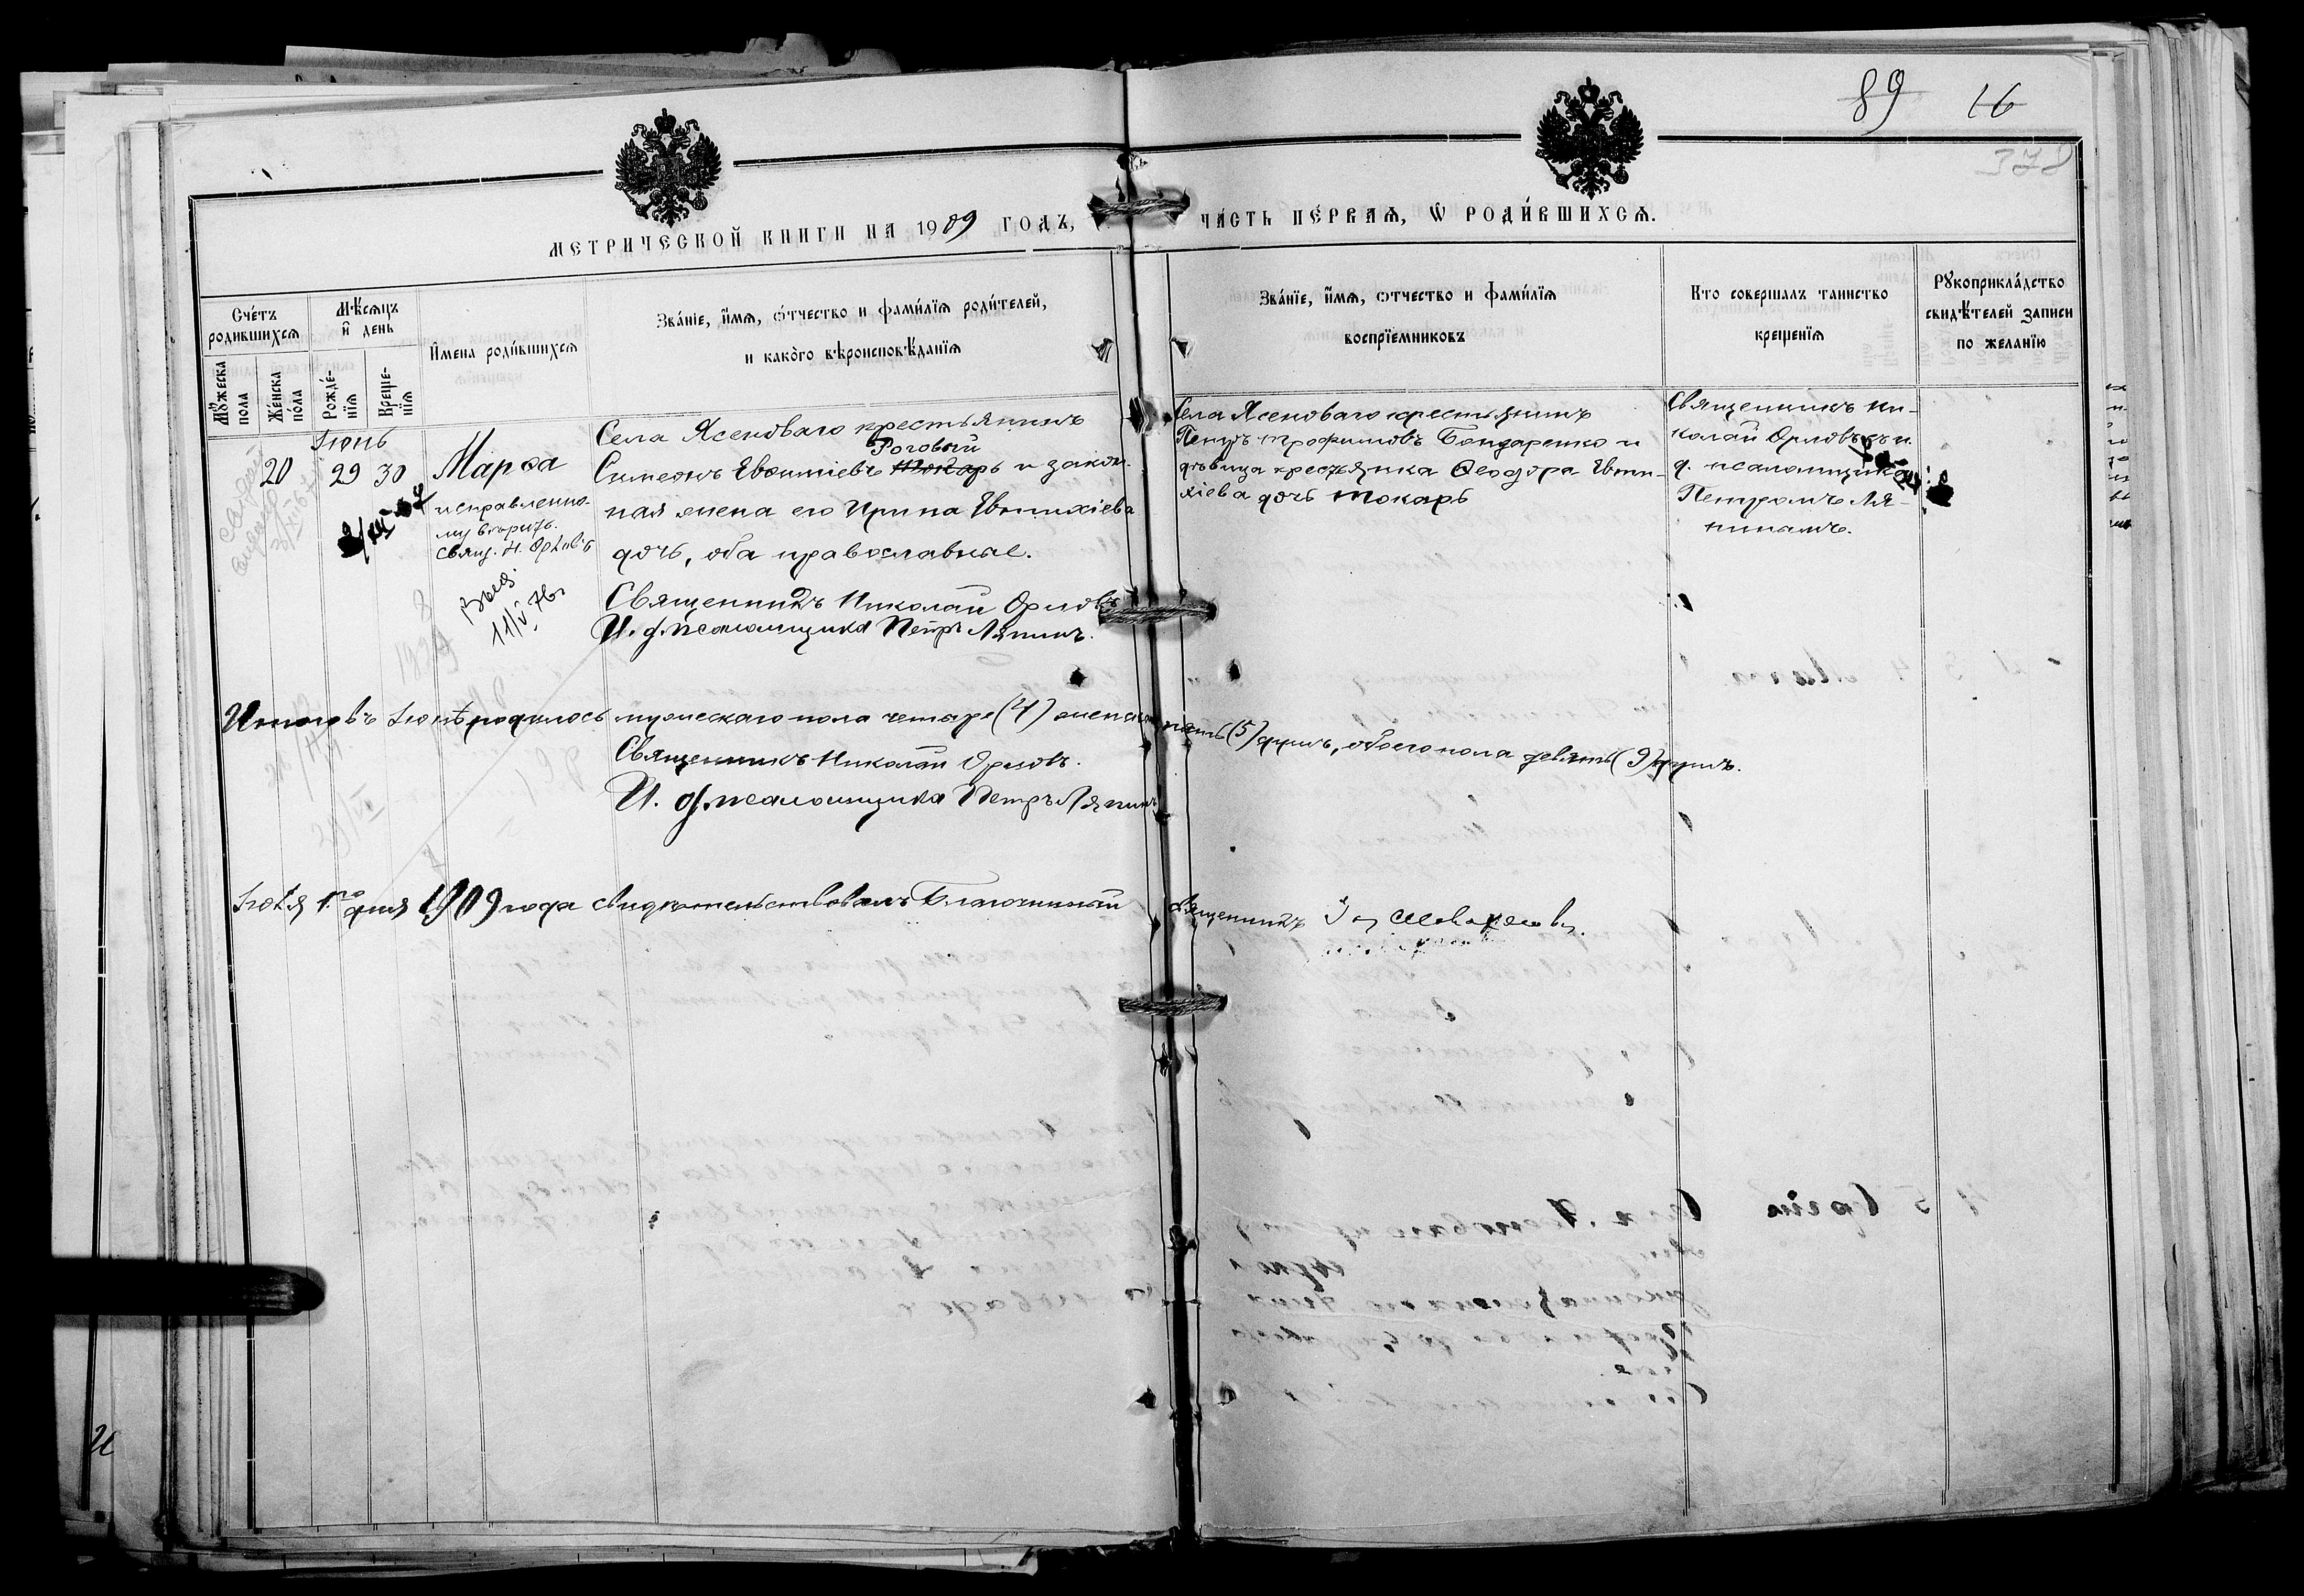 89 16
379
МЕТРИЧЕСКОЙ КНИГИ НА 1909 ГОДЪ, ЧА́СТЬ ПЕ́РВАЯ, Ѡ РОДИ́ВШИХСЯ.
Сче́тъ родившихся
Мѣ́сяцъ и҆ день
И҆мена роди́вшихся
Зва́нїе, и҆́мя, ѻ҆́тчество и фами́лїя роди́телей,
и како́го вѣроисповѣ́данїя
Зва́нїе, и҆́мя, ѻтчество и фами́лїя
воспрїемниковъ
Кто совершалъ таинство
крещенїя
Рꙋкоприкла́дство
свидѣ́телей записи
по желанїю
Мꙋ́жеска пола
Же́нска по́ла
Рожде́нїя
Креще́нїя
Іюнь
20 29 30 Марѳа
исправленно-
му вѣрить.
Свящ. Н. Орловъ
Села Ясеноваго крестьянинъ
Роговый
Симеонъ Евѳиміевъ Токарь и закон-
ная жена его Ирина Евтихіева
дочь, оба православные.
Священникъ Николай Орловъ
И. д. псаломщика Петръ Ляпинъ.
Села Ясеноваго крестьянинъ
Петръ Трофимовъ Бондаренко и
дѣвица крестьянка Ѳеодора Евти-
хіева дочь Токарь
Священникъ Ни-
колай Орловъ съ и.
д. псаломщика
Петромъ Ля-
пинымъ.
Выд.
11/V 76г
Итого въ Іюнѣ родилось мужескаго пола четыре (4) женска пять (5) душъ, обоего пола девять (9) душъ.
Священникъ Николай Орловъ.
И. д. псаломщика Петръ Ляпинъ
Іюля 1го дня 1909 года свидѣтельствовалъ Благочинный Священникъ